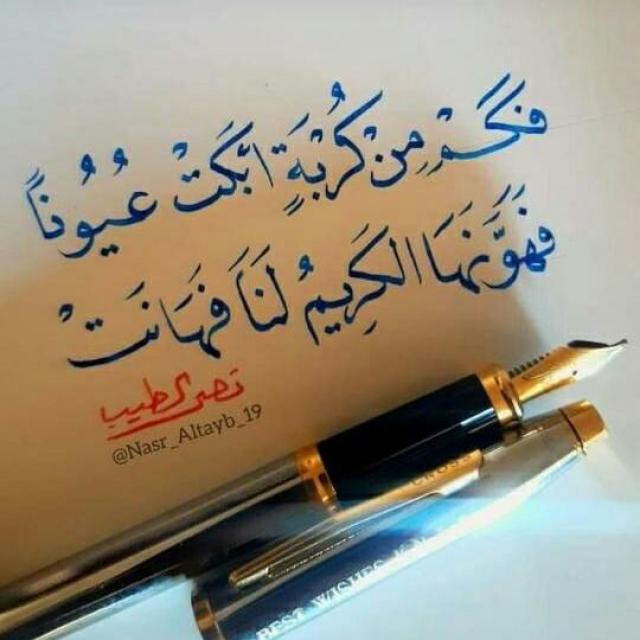 فَكَمْ مِنْ كُرْبَةٍ ابْكَتْ عُيُوُناً
فَهَوَّنَهَا الكَرِيمُ لَنَا فَهَانَتْ
نصر الطيب
@Nasr_Altayb_19
CROSS
BEST WISHES